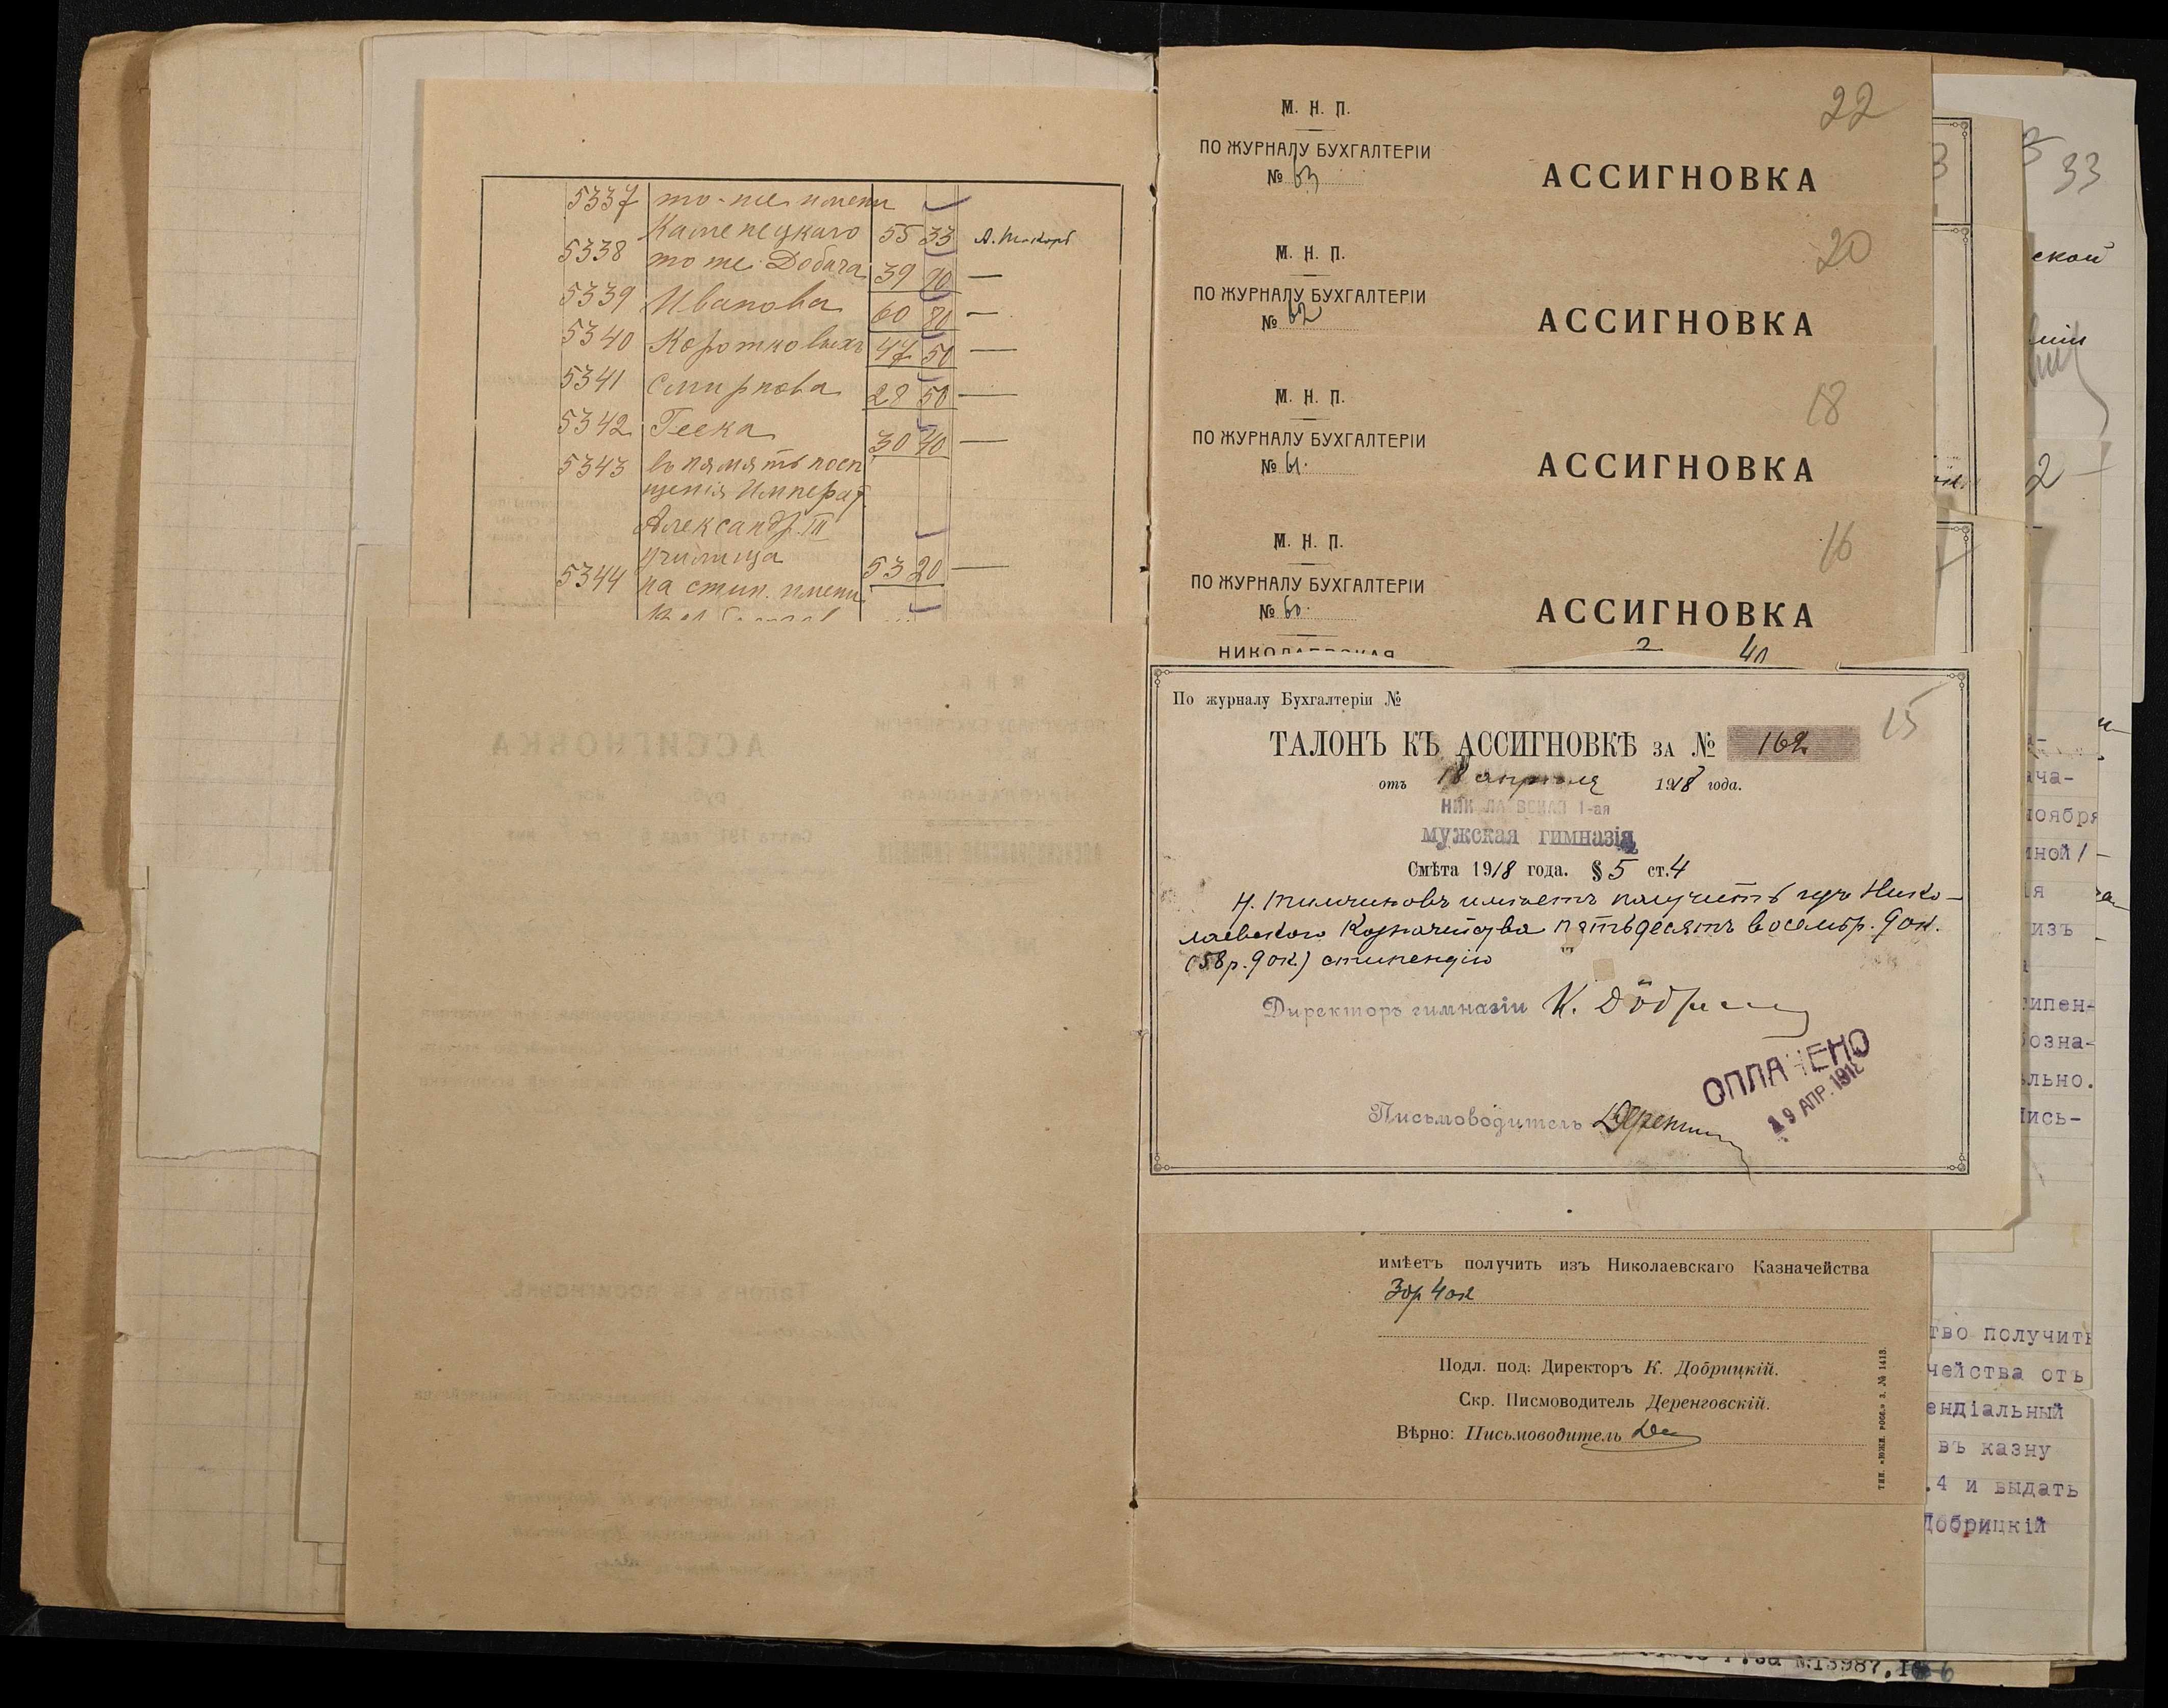 5337 то-же имени
Каменецкаго 55 33
5338 то же Добача 39 90
5339 Иванова 60 80
5340 Коротковыхъ 47 50
5341 Смирнова 28 50
5342 Геека 30 40
5343 въ память посѣ
щенія Императ
Александр. III
училища 53 20
5344 на стип. имени
22
М. Н. П.
ПО ЖУРНАЛУ БУХГАЛТЕРІИ
№ 63
АССИГНОВКА
20
М. Н. П.
ПО ЖУРНАЛУ БУХГАЛТЕРІИ
№ 62
АССИГНОВКА
18
М. Н. П.
ПО ЖУРНАЛУ БУХГАЛТЕРІИ
№ 61.
АССИГНОВКА
16
М. Н. П.
ПО ЖУРНАЛУ БУХГАЛТЕРІИ
№ 60.
АССИГНОВКА
НИКОЛАЕВСКАЯ
40
По журналу Бухгалтеріи №
15
ТАЛОНЪ КЪ АССИГНОВКѢ ЗА № 162
отъ 18 апрѣля 1918 года.
НИК ЛА ВСКАЯ 1-ая
мужская гимназія
Смѣта 1918 года. § 5 ст. 4
имѣетъ получить изъ Нико-
лаевского Казначейства пятьдесятъ восемь р. 90к.
(58р. 90к.) стипендію
Директоръ гимназіи К. Добр
ОПЛАЧЕНО
19 АПР. 1918
Письмоводитель Дерен
имѣетъ получить изъ Николаевскаго Казначейства
30р 40к
Подл. под: Директоръ К. Добрицкій.
Скр. Писмоводитель Деренговскій.
Вѣрно: Письмоводитель
ТИП. «ЮЖН. РОСС.» З. № 1413.
33
ской
2
ача-
ноября
ной/
ія
изъ
типен-
озна-
льно.
ись-
тво получить
чейства отъ
ендіальный
въ казну
.4 и выдать
Добрицкій
№13987,